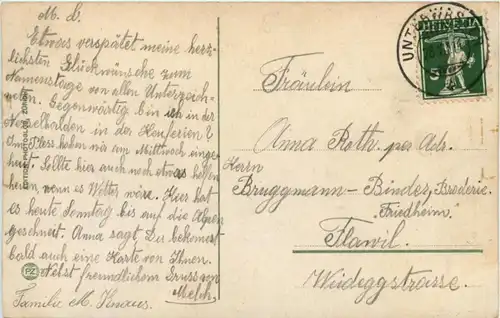 M. b.
Etwas verspätet meine herz-
lichsten Glückwünsche zum
Namenstage von allen Unterzeich-
neten. Gegenwärtig bin ich in der
in den Heuferien.
haben wir am Mittwoch einge-
heut. Sollte hier auch noch etwas helfen
heuen, wenn es Wetter wäre. Hier hat
es heute Sonntag bis auf die Alpen
geschneit. Anna sagt Du bekommst
bald auch eine Karte von Ihnen.
Nebst freundlichem Gruss von
Melch.
Familie M. Knaus.
EDITION PHOTOGLOB, ZÜRICH
PZ
HELVETIA
5
Fräulein
Anna Roth, per Adr.
Herrn
Bruggmann-Binder, Broderie.
Friedheim
Flawil.
Weideggstrasse.